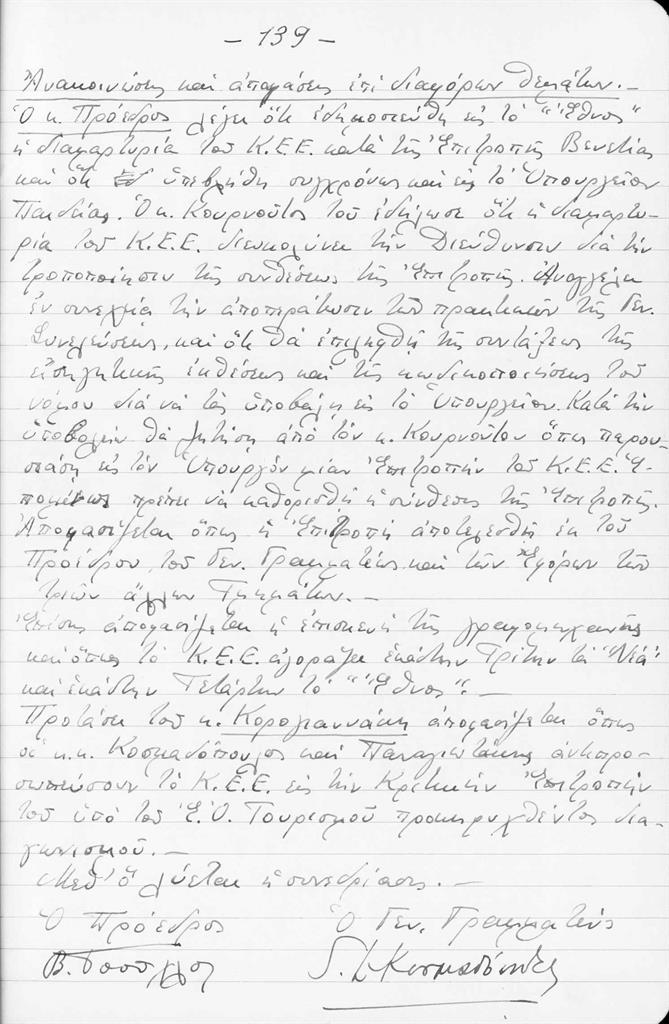 - 139 -
Ἀνακοινώσεις καὶ ἀποφάσεις ἐπὶ διαφόρων θεμάτων. -
Ὁ κ. Πρόεδρος λέγει ὅτι ἐδημοσιεύθη εἰς τὸ "Ἔθνος"
ἡ διαμαρτυρία τοῦ Κ.Ε.Ε. κατὰ τῆς Ἐπιτροπῆς Βενετίας
καὶ ὅτι ὑπεβλήθη συγχρόνως καὶ εἰς τὸ Ὑπουργεῖον
Παιδείας. Ὁ κ. Κουρνοῦτος τοῦ ἐδήλωσε ὅτι ἡ διαμαρτυ-
ρία τοῦ Κ.Ε.Ε. διευκολύνει τὴν Διεύθυνσιν διὰ τὴν
τροποποίησιν τῆς συνθέσεως τῆς Ἐπιτροπῆς. Ἀναγγέλει
ἐν συνεχείᾳ τὴν ἀποπεράτωσιν τῶν πρακτικῶν τῆς Γεν.
Συνελεύσεως, καὶ ὅτι θὰ ἐπιληφθῇ τῆς συντάξεως τῆς
εἰσηγητικῆς ἐκθέσεως καὶ τῆς κωδικοποιήσεως τοῦ
νόμου διὰ νὰ τὰς ὑποβάλῃ εἰς τὸ Ὑπουργεῖον. Κατὰ τὴν
ὑποβολὴν θὰ ζητήσῃ ἀπὸ τὸν κ. Κουρνοῦτον ὅπως παρου-
σιάσῃ εἰς τὸν Ὑπουργὸν μίαν Ἐπιτροπὴν τοῦ Κ.Ε.Ε. Ἑ-
πομένως πρέπει νὰ καθορισθῇ ἡ σύνθεσις τῆς Ἐπιτροπῆς.
Ἀποφασίζεται ὅπως ἡ Ἐπιτροπὴ ἀποτελεσθῇ ἐκ τοῦ
Προέδρου, τοῦ Γεν. Γραμματέως καὶ τῶν Ἐφόρων τῶν
τριῶν ἄλλων Τμημάτων. -
Ἐπίσης ἀποφασίζεται ἡ ἐπισκευὴ τῆς γραφομηχανῆς
καὶ ὅπως τὸ Κ.Ε.Ε. ἀγοράζει ἑκάστην Τρίτην τὰ "Νέα"
καὶ ἑκάστην Τετάρτην τὸ "Ἔθνος". -
Προτάσει τοῦ κ. Κορογιαννάκη ἀποφασίζεται ὅπως
οἱ κ.κ. Κοσμαδόπουλος καὶ Παναγιωτάκης ἀντιπρο-
σωπεύσουν τὸ Κ.Ε.Ε. εἰς τὴν Κριτικὴν Ἐπιτροπὴν
τοῦ ὑπὸ τοῦ Ἑ.Ο. Τουρισμοῦ προκηρυχθέντος δια-
γωνισμοῦ. -
Μεθ' ὃ λύεται ἡ συνεδρίασις. -
Ὁ Πρόεδρος Ὁ Γεν. Γραμματεύς